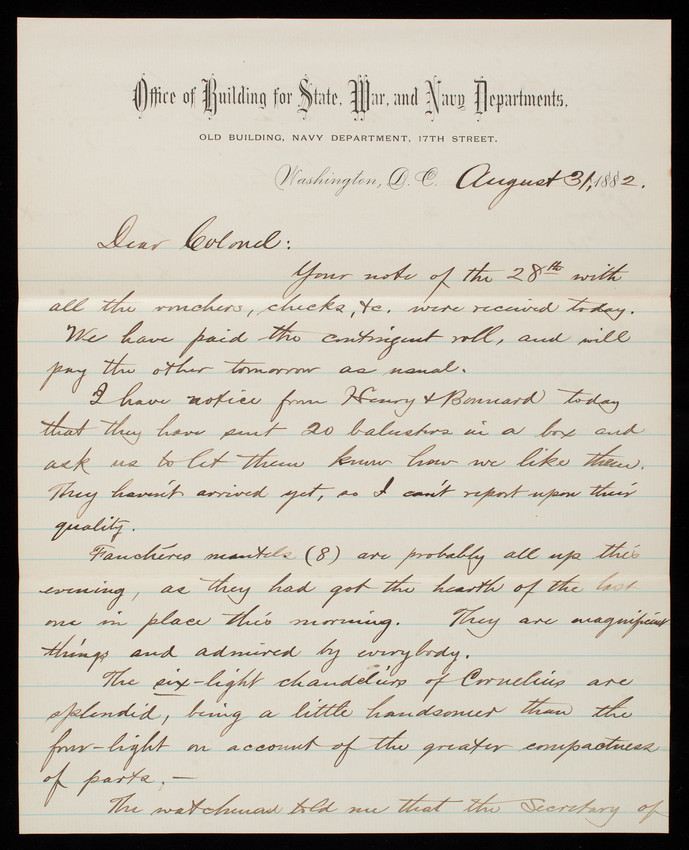 Office of Building for State, War, and Navy Departments,
OLD BUILDING, NAVY DEPARTMENT, 17TH STREET.
Washington, D. C. August 31, 1882.
Dear Colonel:
Your note of the 28th with
all the vouchers, checks, &c. were received today.
We have paid the contingent roll, and will
pay the other tomorrow as usual.
I have notice from Henry & Bonnard today
that they have sent 20 balusters in a box and
ask us to let them know how we like them.
They haven't arrived yet, so I can't report upon their
quality.
Fauchéres mantels (8) are probably all up this
evening, as they had got the hearth of the last
one in place this morning. They are magnificent
things and admired by everybody.
The six-light chandeliers of Cornelius are
splendid, being a little handsomer than the
four-light on account of the greater compactness
of parts.—
The watchman told me that the Secretary of